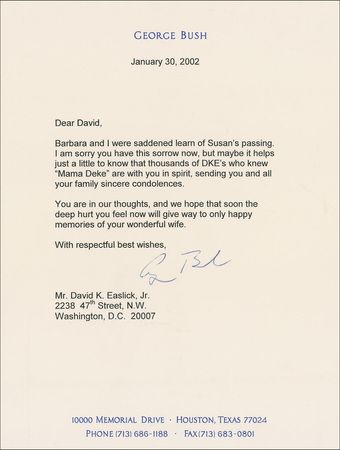 GEORGE BUSH
January 30, 2002
Dear David,
Barbara and I were saddened learn of Susan's passing.
I am sorry you have this sorrow now, but maybe it helps
just a little to know that thousands of DKE's who knew
"Mama Deke" are with you in spirit, sending you and all
your family sincere condolences.
You are in our thoughts, and we hope that soon the
deep hurt you feel now will give way to only happy
memories of your wonderful wife.
With respectful best wishes,
G Bush
Mr. David K. Easlick, Jr.
2238 47th Street, N.W.
Washington, D.C. 20007
10000 MEMORIAL DRIVE · HOUSTON, TEXAS 77024
PHONE (713) 686-1188 · FAX (713) 683-0801